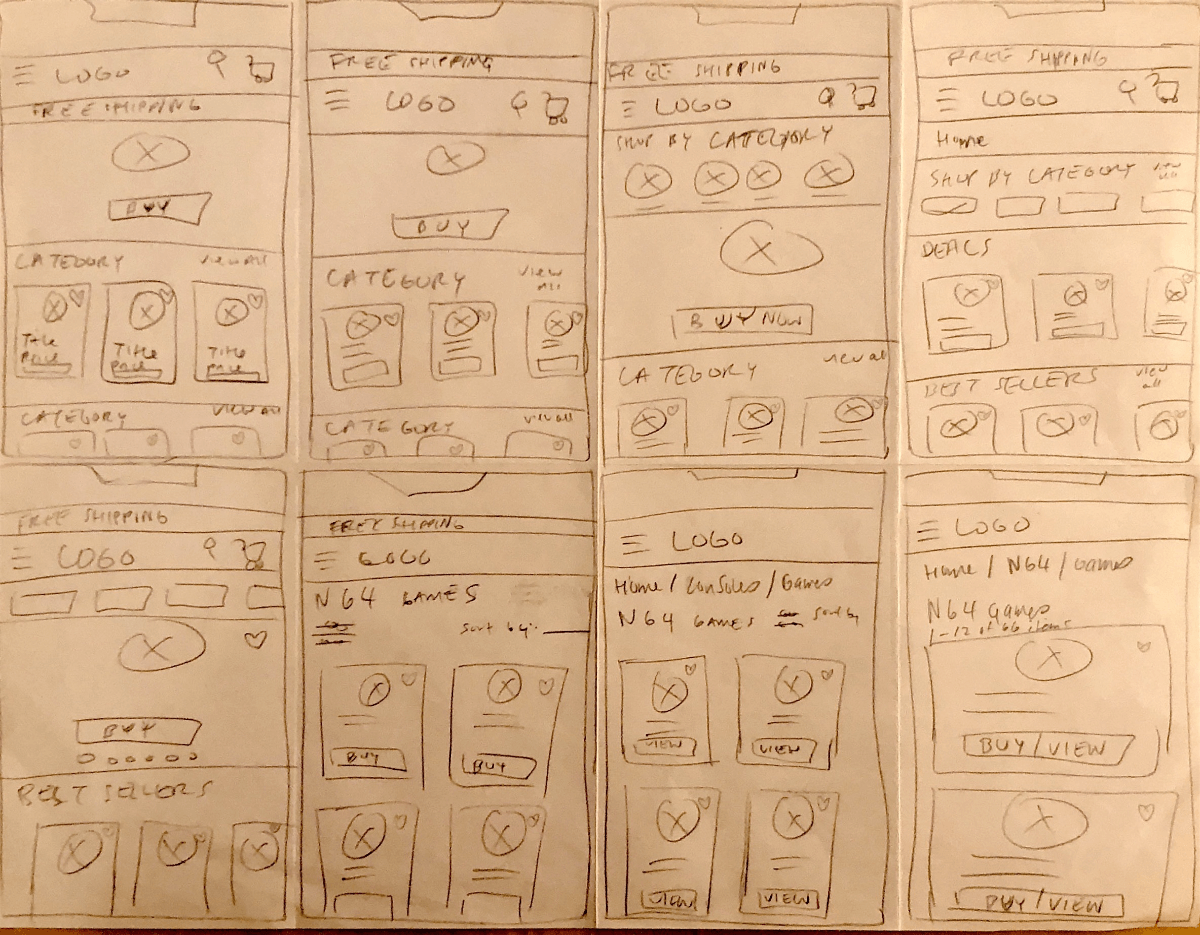 LOGO
FREE SHIPPING
BUY
CATEGORY View All
Title Title Title
Price Price Price
CATEGORY View All
FREE SHIPPING
LOGO
BUY
CATEGORY View
All
CATEGORY View all
FREE SHIPPING
LOGO
SHOP BY CATEGORY
BUY NOW
CATEGORY View all
FREE SHIPPING
LOGO
Home
SHOP BY CATEGORY View
all
DEALS
BEST SELLERS View
all
FREE SHIPPING
LOGO
BUY
BEST SELLERS
FREE SHIPPING
LOGO
N64 GAMES
Sort by:
BUY BUY
LOGO
Home / Consoles / Games
N64 GAMES Sort by
VIEW VIEW
VIEW VIEW
LOGO
Home / N64 / Games
N64 Games
1-12 of 66 items
BUY/VIEW
BUY/VIEW